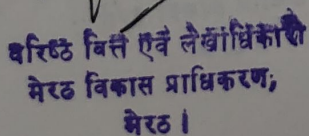 वरिष्ठ वित्त एवं लेखाधिकारी
मेरठ विकास प्राधिकरण,
मेरठ।